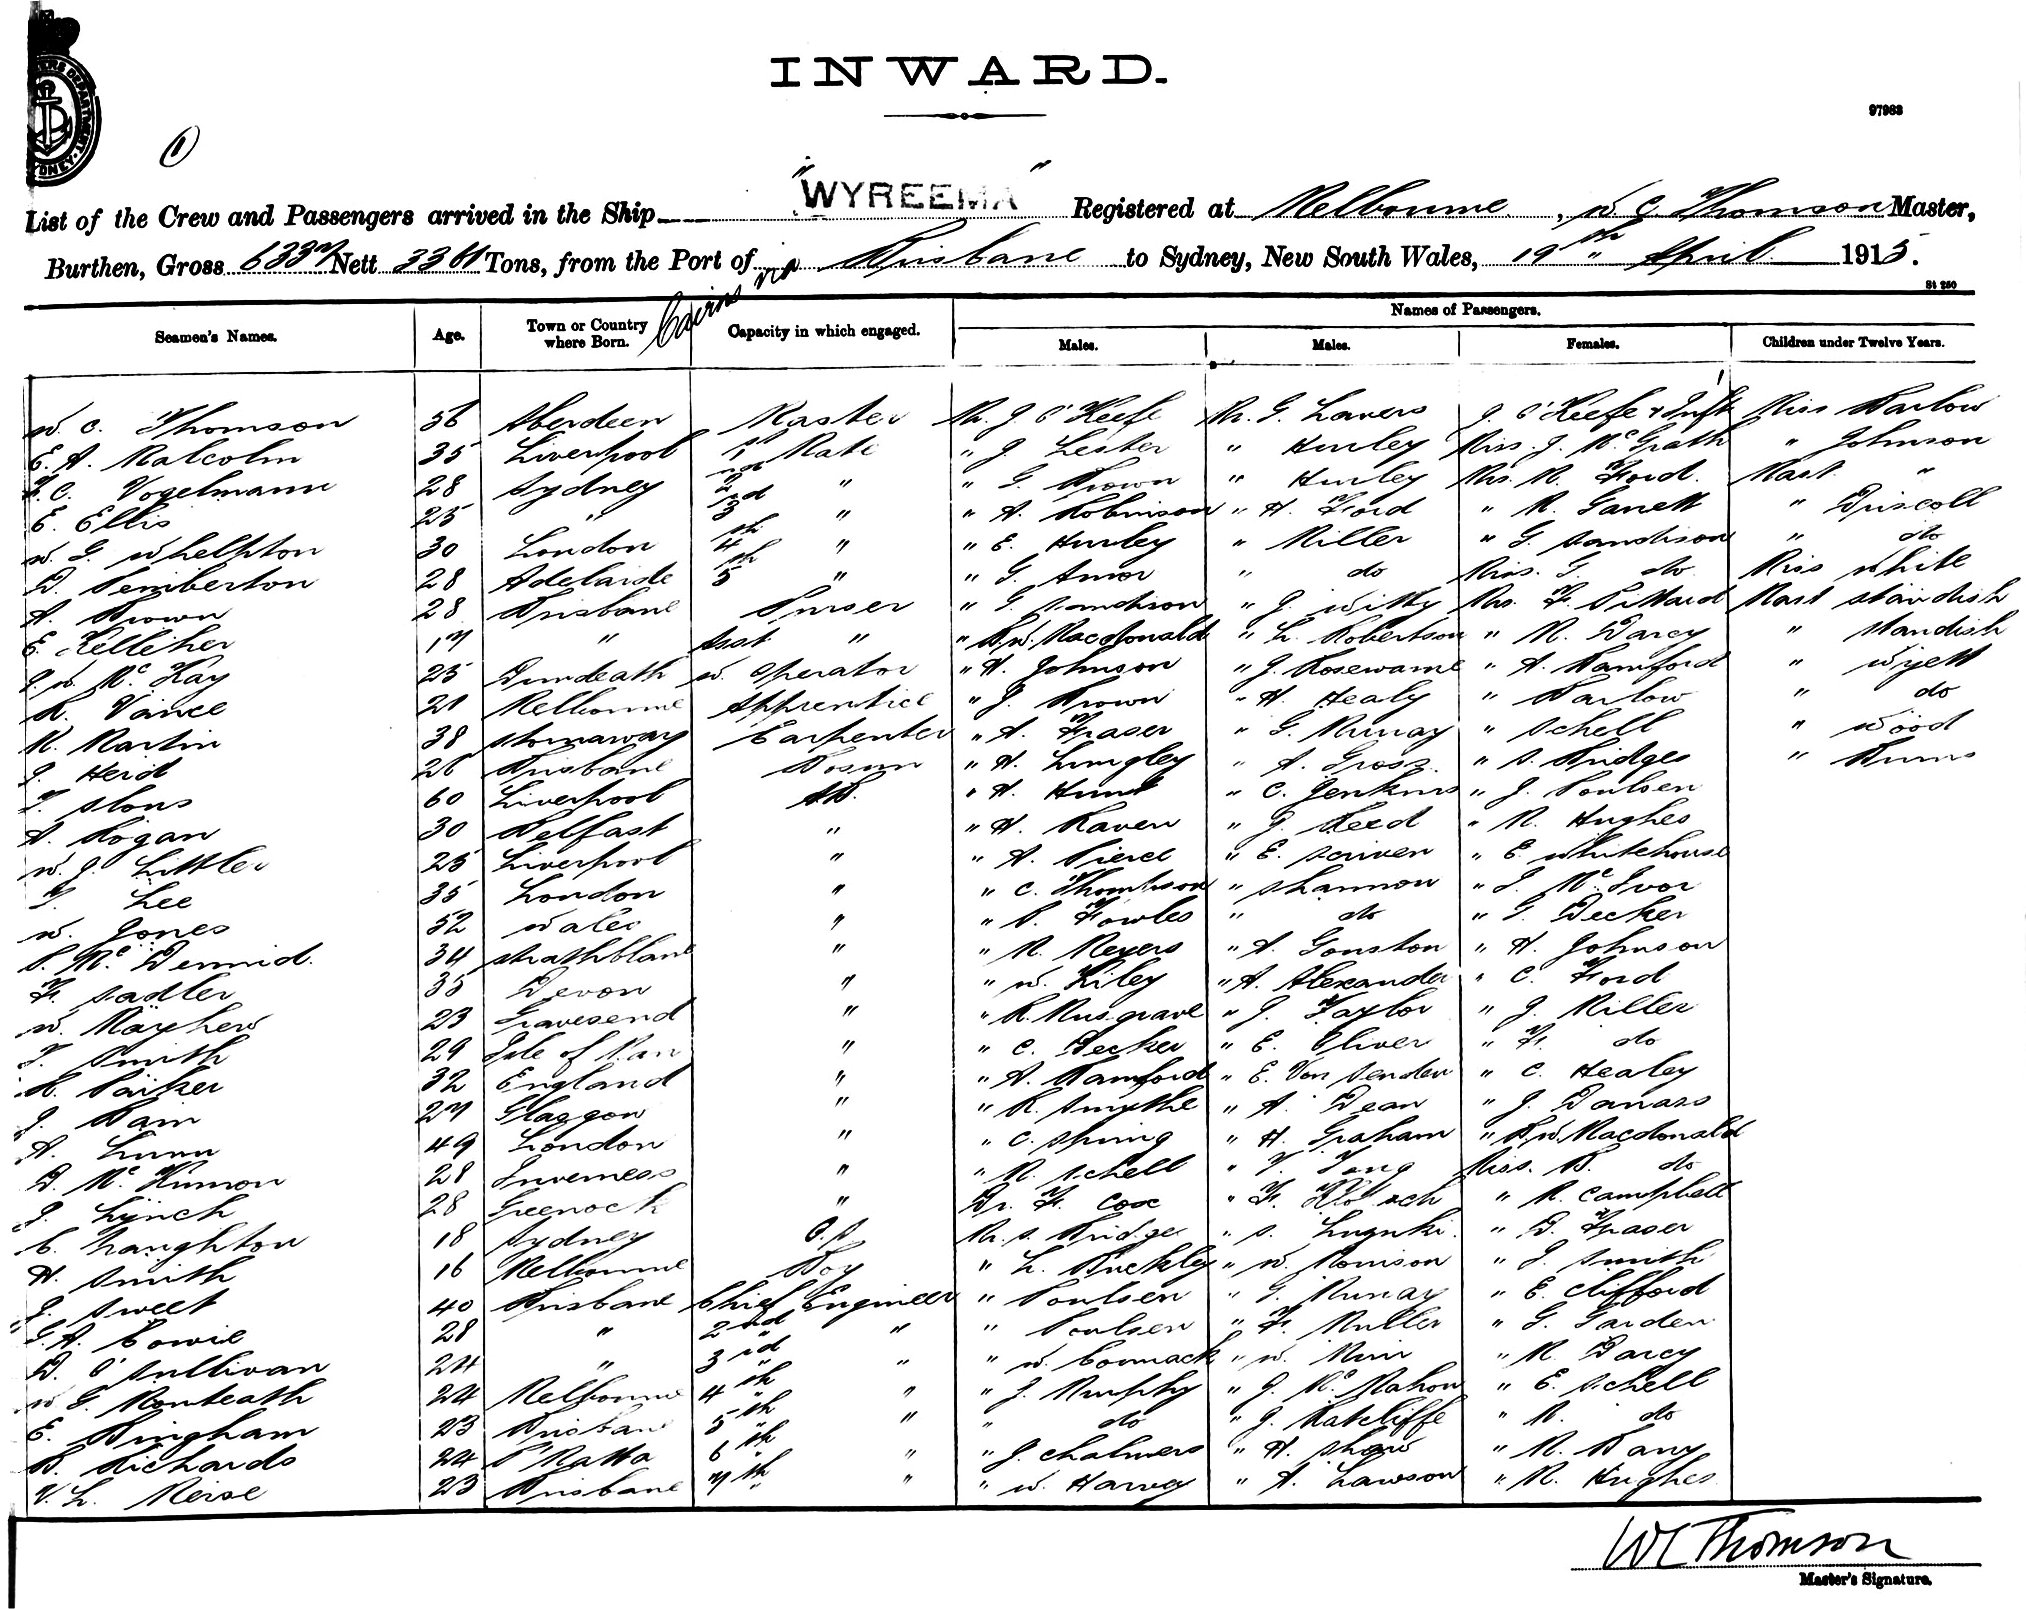 INWARD.
97983
(1)
List of the Crew and Passengers arrived in the Ship "WYREEMA" Registered at Melbourne, W C. Thomson Master,
Burthen, Gross 6337 Nett 3361 Tons, from the Port of Cairns via Brisbane to Sydney, New South Wales, 19th April 1915.
St 250
Seamen's Names. Age. Town or Country where Born. Capacity in which engaged. Names of Passengers.
Males. Males. Females. Children under Twelve Years.
W. C. Thomson 56 Aberdeen Master Mr. J. O'Keefe Mr. G. Lavers J. O'Keefe & Inft Miss Barlow
E. A. Malcolm 35 Liverpool 1st Mate " J. Lester " Hurley Miss. J. McGrath " Johnson
F. C. Vogelmann 28 Sydney 2nd " " G. Brown " Hurley Mrs. M. Ford. Mast. "
E. Ellis 25 " 3rd " " A. Robinson " H. Ford " M. Garrett " Driscoll
W. G. Whelpton 30 London 4th " " E. Hurley " Miller " G. Sandison " do
D. Pemberton 28 Adelaide 5th " " G. Amor " do Miss. G. do Miss White
A. Brown 28 Brisbane Purser " G. Sandison " J. Witty Mrs. F. Pittard Mast Standish
E. Kelliher 17 " Asst " " R. W. Macdonald " L. Robertson " M. Darcy " Standish
J. W. McKay 25 Dunbeath W. Operator " H. Johnson " J. Rosewarne " A. Bamford " Wyett
R. Vance 21 Melbourne Apprentice " J. Brown " H. Healy " Barlow " do
M. Martin 38 Stornaway Carpenter " A. Fraser " G. Murray " Schell " Wood
J. Heid 26 Brisbane Bosun " H. Lungley " A. Gross. " S. Bridges " Burns
T. Slons 60 Liverpool AB. " H. Hunt " C. Jenkins " J. Poulsen
A. Hogan 30 Belfast " " H. Raven " G. Reed " M. Hughes
W. J. Littler 25 Liverpool " " A. Pierce " E. Scriven " E. Whitehouse
T. Lee 35 London " " C. Thompson " Shannon " J. McIvor
W. Jones 52 Wales " " P. Fowles " do " G. Decker
P. McDermid. 34 Strathblane " " M. Meyers " A. Gonston " H. Johnson
F. Sadler 35 Devon " " W. Kiley " A. Alexander " C. Ford
W. Mayhew 23 Gravesend " " R. Musgrave " J. Taylor " J. Miller
T. Smith 29 Isle of Man " " C. Decker " E. Oliver " F. do
R. Parker 32 England " " A. Bamford " E. Von Senden " C. Healey
J. Bam 27 Glasgow " " R. Smythe " A. Dean " J. Danass
A. Lunn 49 London " " C. Spring " H. Graham " R. W. Macdonald
D. McKinnon 28 Inverness " " M. Schell " T. Tong Miss. B. do
J. Lynch 28 Greenock " Dr. F. Cox " F. " R. Campbell
C. Naughton 18 Sydney O.S. Mr. S. Bridge " S. " D. Fraser
H. Smith 16 Melbourne Boy " L. Buckley " W. Morrison " J. Smith
J. Sweet 40 Brisbane Chief Engineer " Poulsen " T. Murray " E. Clifford
G. A. Cowie 28 " 2nd " " Poulsen " F. Muller " G. Garden
D. O'Sullivan 24 " 3rd " " W. Cormack " W. Muir " M. Darcy
W G. Monteath 24 Melbourne 4th " " J. Murphy " J. McMahon " E. Schell
E. Bingham 23 Brisbane 5th " " do " J. Ratcliffe " M. do
B. Richards 24 P'Matta 6th " " J. Chalmers " H. Shaw " M. Barry
V. L. Meise 23 Brisbane 7th " " W. Harvey " A. Lawson " M. Hughes
WC Thomson
Master's Signature.